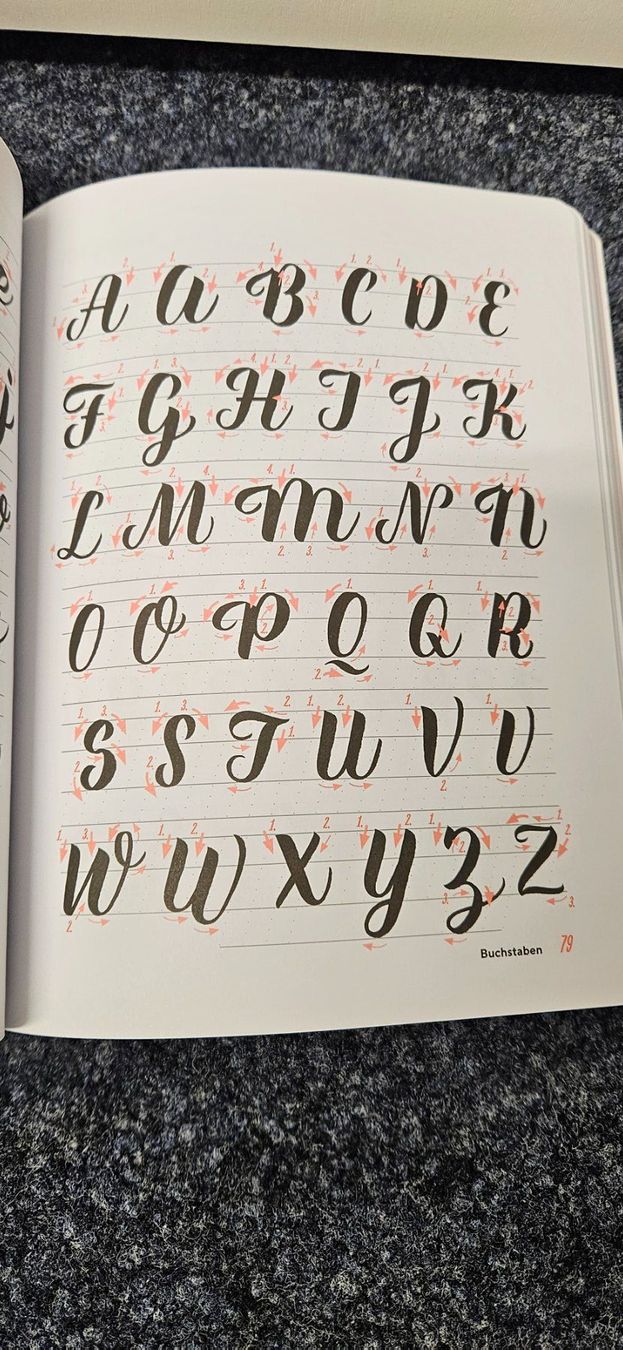 A a B C D E
F G H I J K
L M M N N
O O P Q Q R
S S T U V V
W W X Y Z Z
Buchstaben 79